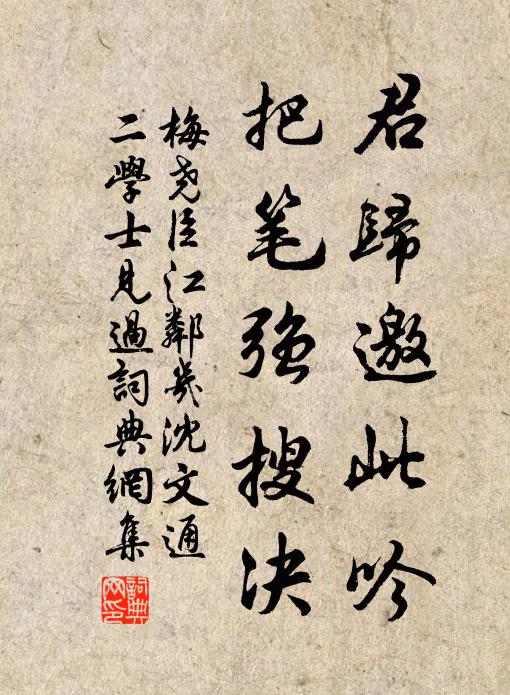 君歸邀此吟
把笔強搜決
梅尧臣江鄰幾沈文通
二學士見過詞典網集
詞典网印